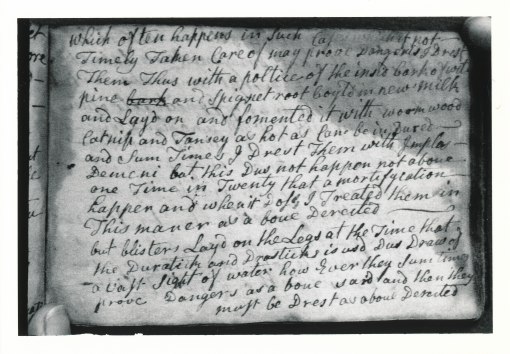 which often happens in such Cas not
Timely Taken Care of may prove Dangers I Drest
Them Thus with a poltice of the insid bark of wite
pine bark and Spignet root boyld in new milk
and Layd on and fomented it with wormwood
Catnip and Tansey as hot as Can be indured
and Sum Times I Drest Them with Emplas
Demeni but this Dus not happen not above
one Time in Twenty that a mortifycation
happen and when it dos I Treated them in
This maner as a bove Derected
but blisters Layd on the Legs at the Time that
the Duratick and Drasticks is usd Dus Draw of
a vast sight of water how Ever they sum times
prove Dangers as a bove said and then they
must be Drest as above Derected